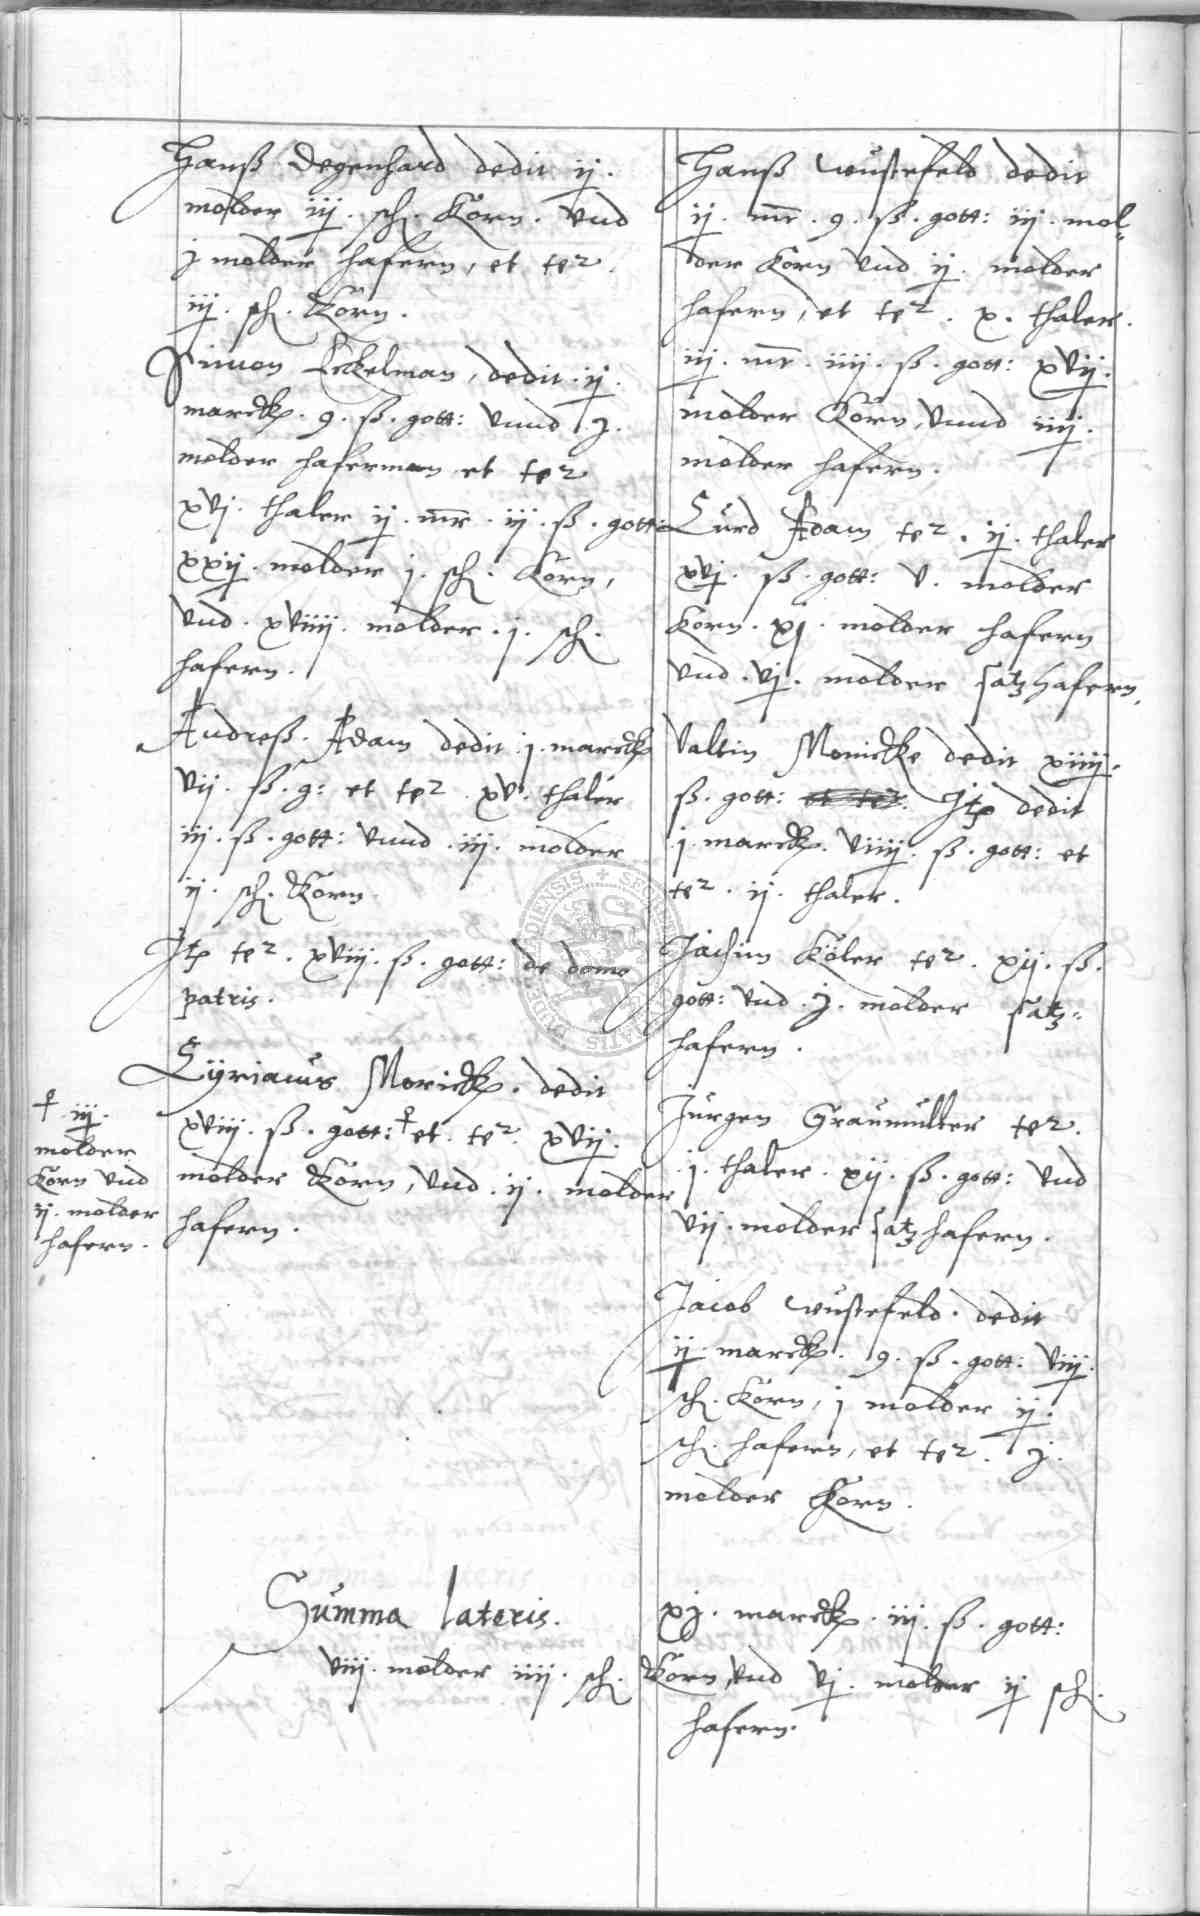 Hanß Degenhard dedit ij.
molder iij. sch. Korn. Vnd
j molder hafern, et ter.
iij. sch. Korn.
Simon Eckelman, dedit. ij.
marck. 9. ß. gott: Vnnd j.
molder haferman et ter
xvj. thaler ij. mr. iij. ß. gott:
xxij. molder j. sch. Korn,
Vnd. xviiij. molder. j. sch.
hafern.
Andreß. Adam dedit j. marck
Vij. ß. g: et ter xv. thaler
iij. ß. gott: Vnnd. iij. molder
ij. sch. Korn.
Itp ter. xviij. ß. gott: de domo
patris.
Cyriacus Morick. dedit
xviij. ß. gott: ☨ et. ter. xvij.
molder Korn, Vnd. ij. molder
hafern.
☨ iij.
molder
Korn Vnd
ij. molder
hafern.
Hanß Wustefeld dedit
ij. mr. 9. ß. gott: iij. mol=
der Korn Vnd ij. molder
hafern, et ter. x. thaler.
iij. mr. iiij. ß. gott: xvij.
molder Korn, Vnnd iiij.
molder hafern.
Curd Adam ter. ij. thaler
xvj. ß. gott: v. molder
Korn. xj. molder hafern
Vnd. vj. molder satzhafern,
Valtin Monicke dedit xiiij.
ß. gott: et ter. Itp dedit
j. marck. Viiij. ß. gott: et
ter. ij. thaler.
Jachim Köler ter. xij. ß.
gott: Vnd. j. molder satz=
hafern.
Jurgen Graumulter ter.
j. thaler. xij. ß. gott: Vnd
Vij. molder satzhafern.
Jacob Wustefeld. dedit
ij. marck. 9. ß. gott: Viij.
sch. Korn, j molder ij.
sch. hafern, et ter. j.
molder Korn.
Summa lateris. xj. marck. iij. ß. gott:
Viij. molder iiij. sch. Korn, Vnd vj. molder ij sch.
hafern.